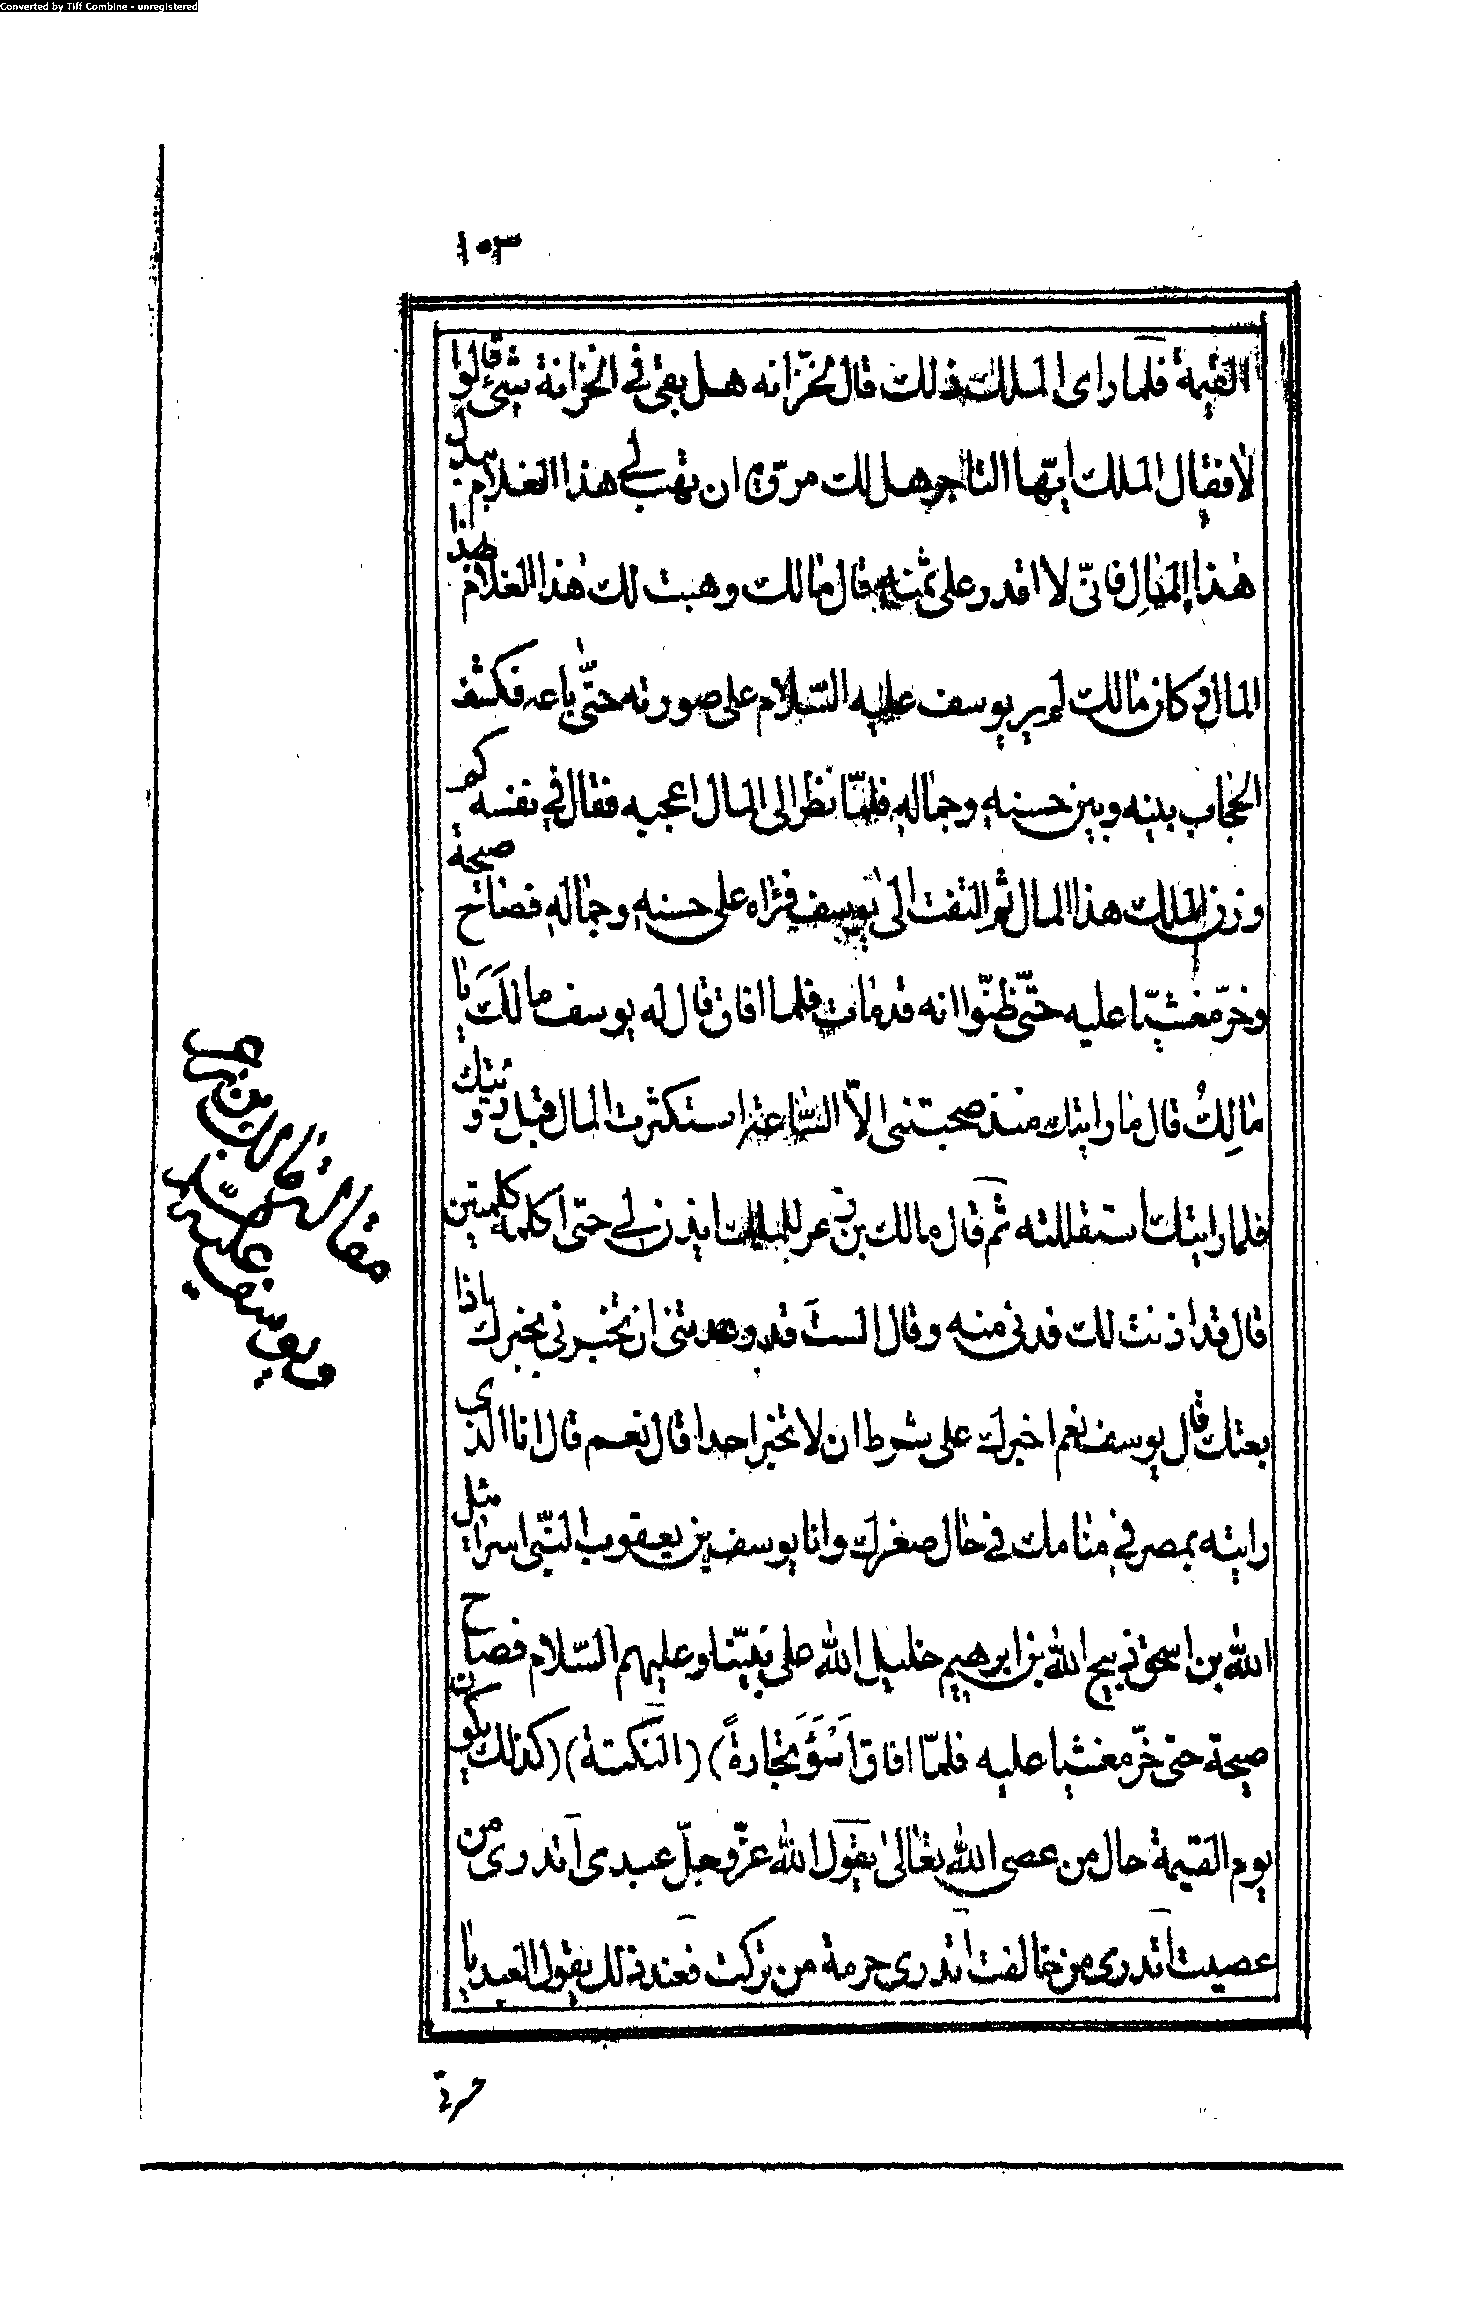 Converted by Tiff Combine - unregistered
١٠٣
القيمة فلما راى الملك ذلك قال لخزانه هل بقى في الخزانة شئ قالوا
لا فقال الملك ايها التاجر هل لك مروة ان تهب لي هذا الغلام بدل
هذا المال فانى لا اقدر على ثمنه قال مالك وهبت لك هذا الغلام لهذا
المال وكان مالك لم ير يوسف عليه السلام على صورته حتى باعه فكشف
الحجاب بينه وبين حسنه وجماله فلما نظر الى المال اعجبه فقال في نفسه كم
وزن الملك هذا المال ثم التفت الى يوسف فراه على حسنه وجماله فصاح صيحة
وخر مغشيا عليه حتى ظنوا انه قد مات فلما افاق قال له يوسف ما لك يا
مالك قال ما رايتك منذ صحبتنى الا الساعة استكثرت المال قبل رؤيتك
فلما رايتك استقللته ثم قال مالك بن ذعر للملك ايذن لي حتى اكلمه كلمتين
قال قد اذنت لك فدنى منه وقال الست قد وعدتنى ان تخبرنى بخبرك اذا
بعتك قال يوسف نعم اخبرك على شرط ان لا تخبر احدا قال نعم قال انا الذى
رايته بمصر في منامك في حال صغرك وانا يوسف بن يعقوب النبى اسرائيل
الله بن اسحق ذبيح الله بن ابرهيم خليل الله على نبينا وعليهم السلام فصاح
صيحة حتى خر مغشيا عليه فلما افاق اسوء تجارة) (النكتة) (كذلك يكون
يوم القيمة حال من عصى الله تعالى يقول الله عز وجل عبدى اتدرى من
عصيت اتدرى من خالفت اتدرى حرمة من تركت فعند ذلك يقول العبد يا
مقالة مالك بن ذعر
ويوسف عليه السلام
حسرتى